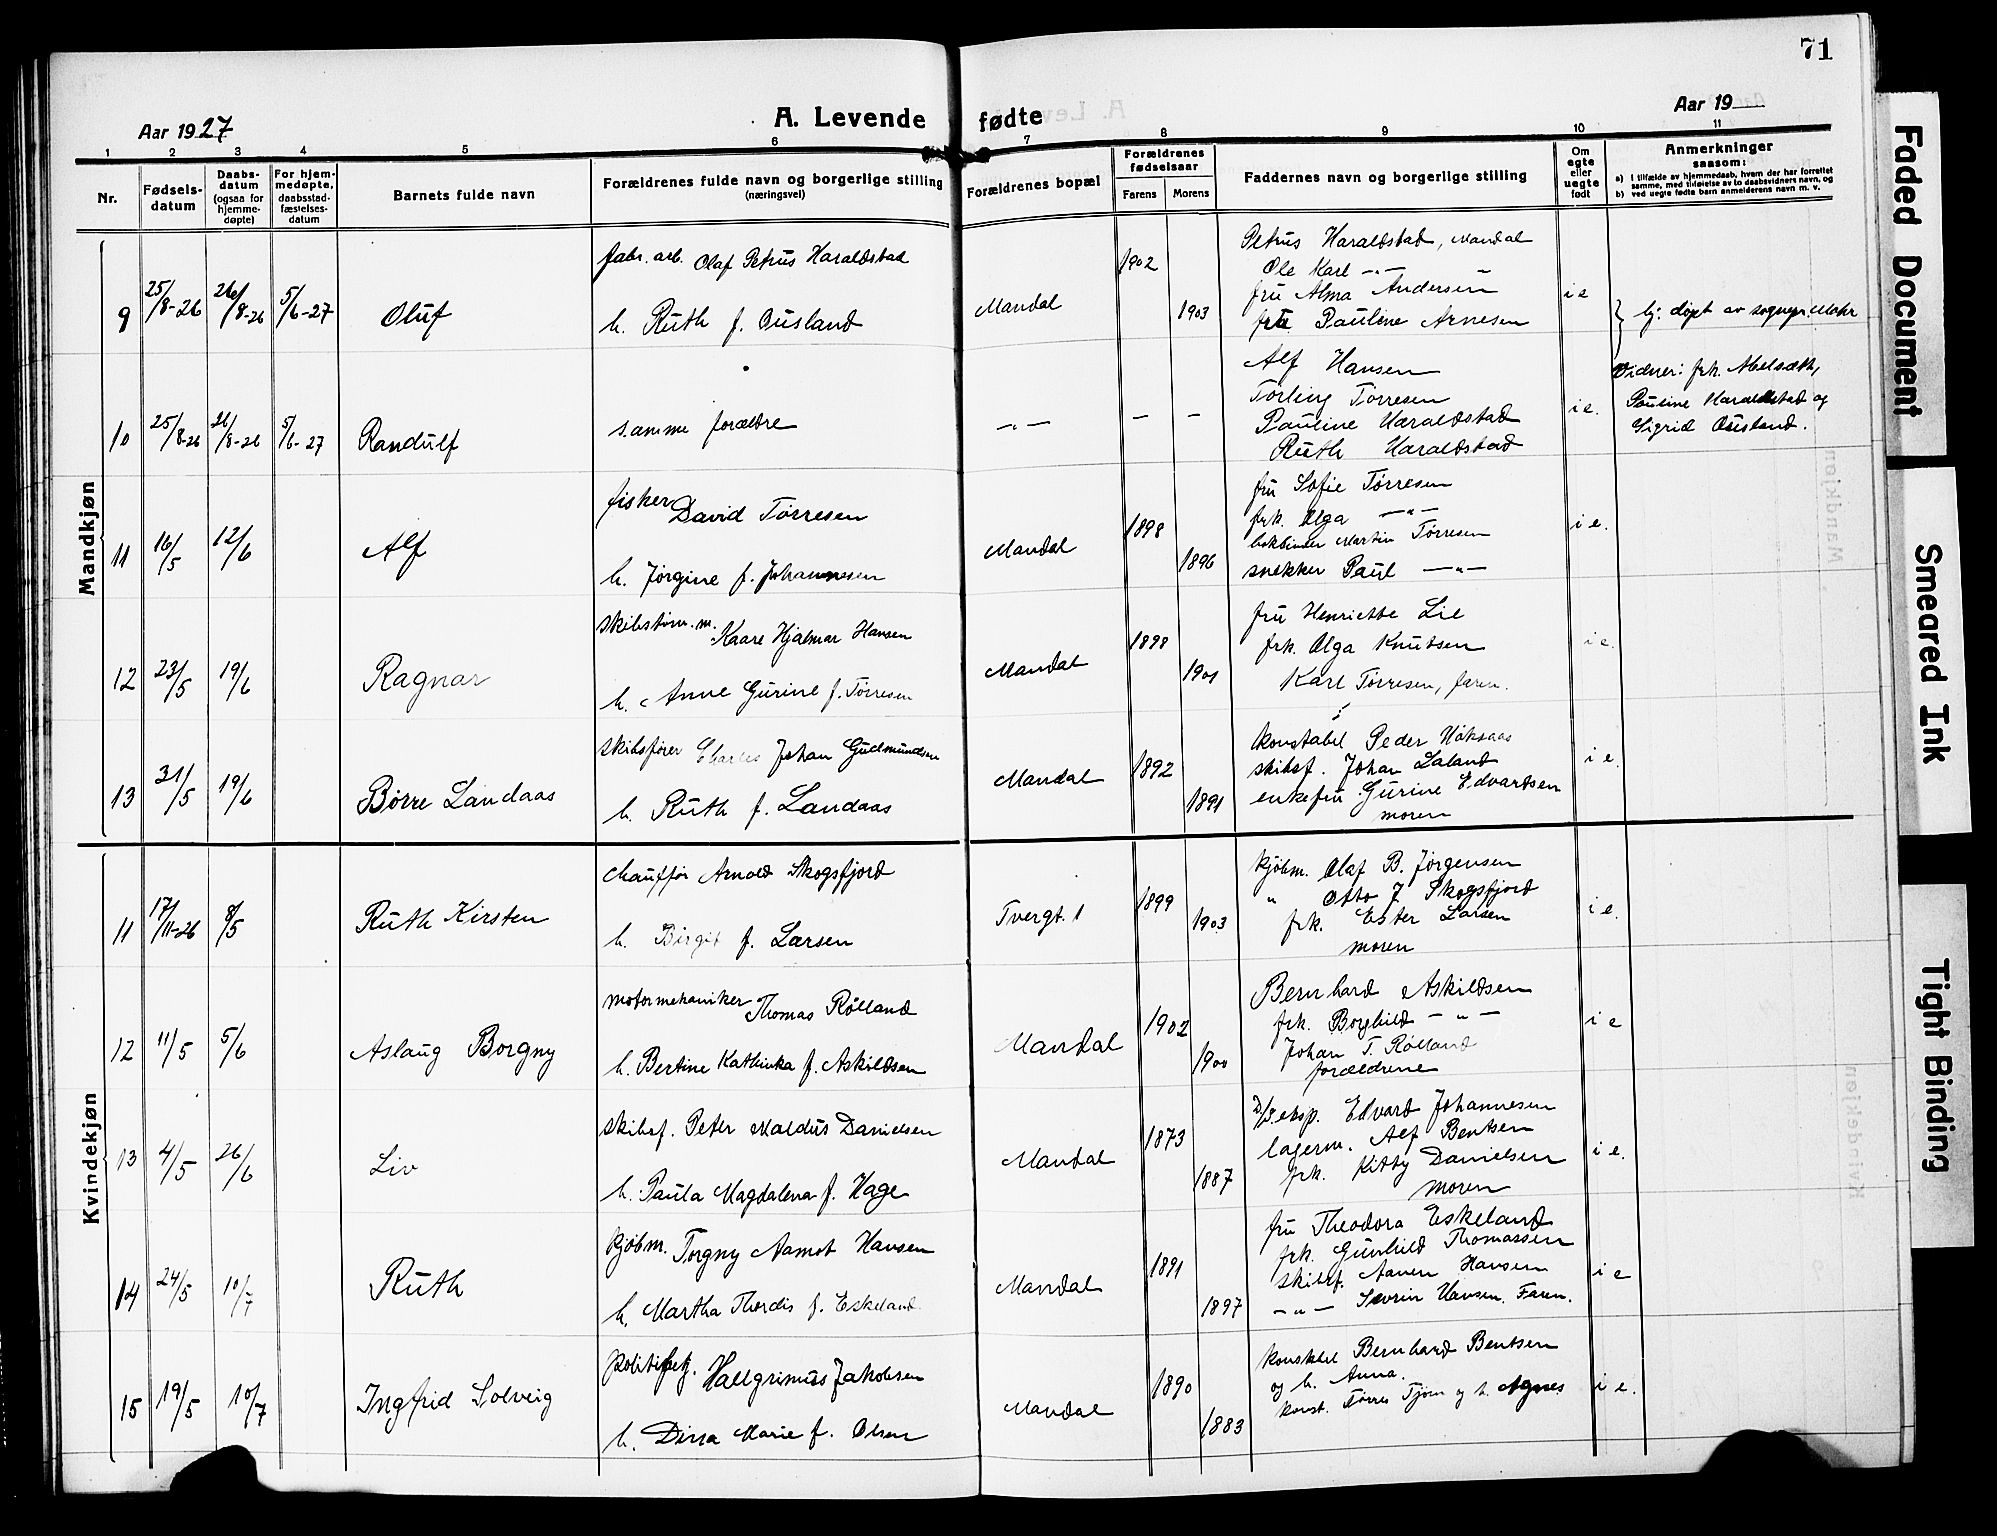 71
Aar 1927
A. Levende fødte
Aar 19
1 2 3 4 5 6 7 8 9 10 11
Nr.
Fødsels-
datum
Daabs-
datum
(ogsaa for
hjemme-
døpte)
For hjem-
medøpte,
daabsstad-
fæstelses-
datum
Barnets fulde navn
Forældrenes fulde navn og borgerlige stilling
(næringsvei)
Forældrenes bopæl
Forældrenes
fødselsaar
Farens Morens
Faddernes navn og borgerlige stilling
Om
egte
eller
uegte
født
Anmerkninger
saasom:
a) I tilfælde av hjemmedaab, hvem der har forrettet
samme, med tilføielse av to daabsvidners navn, og
b) ved uegte fødte barn anmelderens navn m. v.
Mandkjøn
9 25/8-26 26/8-26 5/6-27 Oluf
fabr. arb. Olaf Petrus Haraldstad
h. Ruth f. Ousland
Mandal 1902 1903
Petrus Haraldstad, Mandal
Ole Karl -"-
fru Alma Andersen
fru Pauline Arnesen
i e
hj: døpt av sognepr. Mohr
10 25/8-26 26/8-26 5/6-27 Randulf
samme forældre
-"- - -
Alf Hansen
Tørling Tørresen
Pauline Haraldstad
Ruth Haraldstad
i e.
Vidner: frk. Abelsæth,
Pauline Haraldstad og
Sigrid Ousland.
11 16/5 12/6 Alf
fisker David Tørresen
h. Jørgine f. Johannesen
Mandal 1898 1896
fru Sofie Tørresen
frk. Olga -"-
bokbinder Martin Tørresen
snekker Paul -"-
i e.
12 23/5 19/6 Ragnar
skibstøm. m. Kaare Hjalmar Hansen
h. Anne Gurine f. Tørresen
Mandal 1898 1901
fru Henriette Lie
frk. Olga Knutsen
Karl Tørresen, faren.
i e.
13 31/5 19/6 Børre Landaas
skibsfører Charles Johan Gudmundsen
h. Ruth f. Landaas
Mandal 1892 1891
konstabel Peder Høksaas
skibsf. Johan Laland
enkefru Gurine Edvardsen
moren
i e.
Kvindekjøn
11 17/11-26 8/5 Ruth Kirsten
chauffør Arnold Skogsfjord
h. Birgit f. Larsen
Tvergt. 1 1899 1903
kjøbm. Olaf B. Jørgensen
" Otto J. Skogsfjord
frk. Ester Larsen
moren
i e.
12 11/5 5/6 Aslaug Borgny
motormekaniker Thomas Rølland
h. Bertine Kathinka f. Askildsen
Mandal 1902 1900
Bernhard Askildsen
frk. Borghild -"-
Johan T. Rølland
forældrene
i e
13 4/5 26/6 Liv
skibsf. Peter Maldus Danielsen
h. Paula Magdalena f. Hage
Mandal 1873 1887
D/S.eksp. Edvard Johannesen
lagerm. Alf Bentsen
frk. Kitty Danielsen
moren
i e.
14 24/5 10/7 Ruth
kjøbm. Torgny Aamot Hansen
h. Martha Thordis f. Eskeland
Mandal 1891 1897
fru Theodora Eskeland
frk. Gunhild Thomassen
skibsf. Aanen Hansen
-"- Sevrin Hansen. Faren.
i e
15 19/5 10/7 Ingfrid Solveig
politibetj. Hallgrimus Jakobsen
h. Dina Marie f. Olsen
Mandal 1890 1883
konstbl Bernhard Bentsen
og h. Anna.
konst. Tørres Tjøm og h. Agnes
i e.
Faded Document
Smeared Ink
Tight Binding